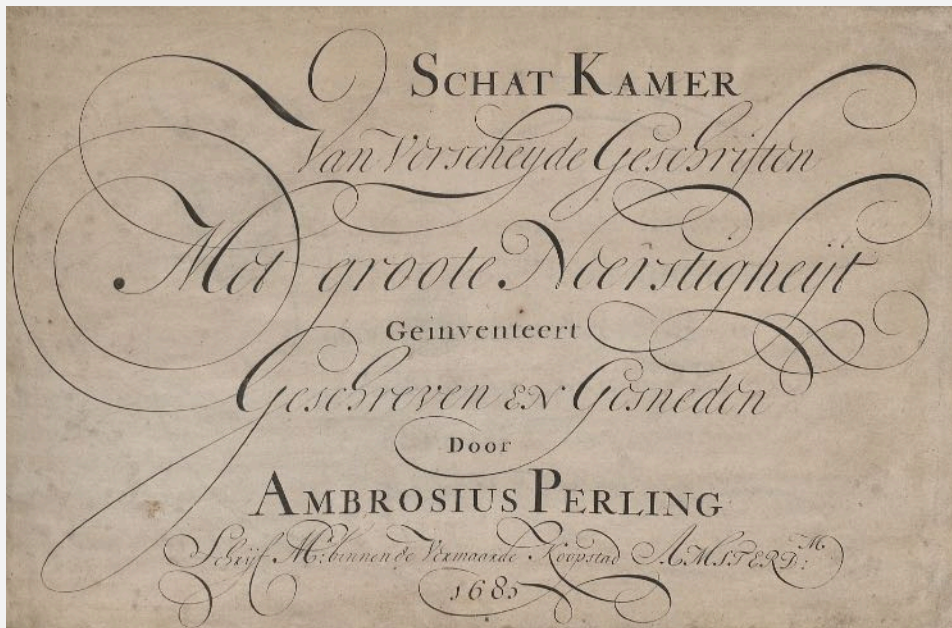 SCHAT KAMER
Van Verscheyde Geschriften
Met groote Neerstigheijt
Geinventeert
Geschreven EN Gesneden
Door
AMBROSIUS PERLING
Schrijf Mr: binnen de Vermaarde Koopstad AMSTERDM:
1685